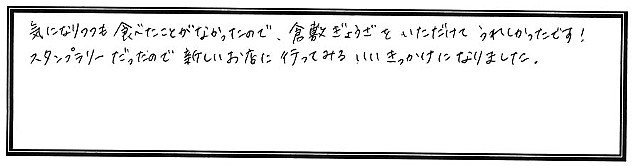 気になりつつも食べたことがなかったので、倉敷ぎょうざをいただけてうれしかったです!
スタンプラリーだったので新しいお店に行ってみるいいきっかけになりました。